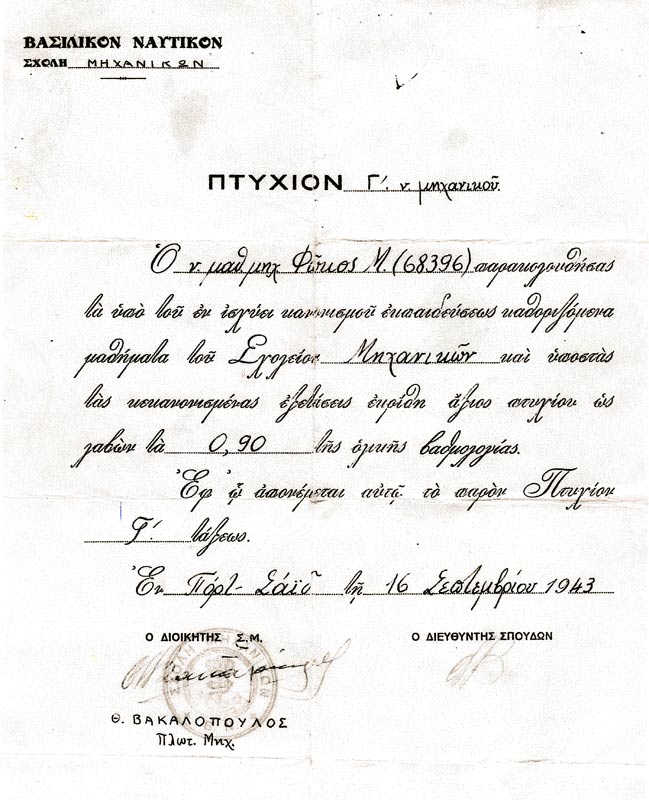 ΒΑΣΙΛΙΚΟΝ ΝΑΥΤΙΚΟΝ
ΣΧΟΛΗ ΜΗΧΑΝΙΚΩΝ
ΠΤΥΧΙΟΝ Γ'. ν. μηχανικοῦ.
Ὁ ν. μαθ. μηχ Φῶκος Μ. (68396) παρακολουθήσας
τὰ ὑπὸ τοῦ ἐν ἰσχύει κανονισμοῦ ἐκπαιδεύσεως καθοριζόμενα
μαθήματα τοῦ Σχολείου Μηχανικῶν καὶ ὑποστὰς
τὰς κεκανονισμένας ἐξετάσεις ἐκρίθη ἄξιος πτυχίου ὡς
λαβὼν τὰ 0,90 τῆς ὁλικῆς βαθμολογίας.
Ἐφ' ᾧ ἀπονέμεται αὐτῷ τὸ παρὸν Πτυχίον
Γ'. τάξεως.
Ἐν Πόρτ-Σάϊδ τῇ 16 Σεπτεμβρίου 1943
Ο ΔΙΟΙΚΗΤΗΣ Σ.Μ.
Ο ΔΙΕΥΘΥΝΤΗΣ ΣΠΟΥΔΩΝ
ΣΧΟΛΗ ΜΗΧΑΝΙΚΩΝ
Θ. ΒΑΚΑΛΟΠΟΥΛΟΣ
Πλωτ. Μηχ.